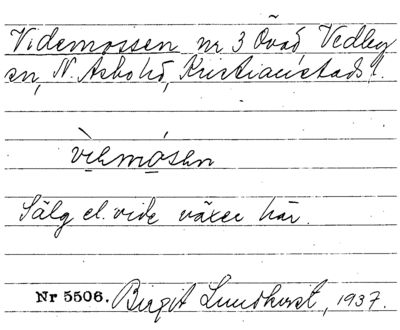 Videmossen nr 3 Övad Vedby
sn, N. Åsbo hd, Kristianstads l.
vìemósen
Sälg el. vide växer här.
Nr 5506. Birgit Lundkvist, 1937.